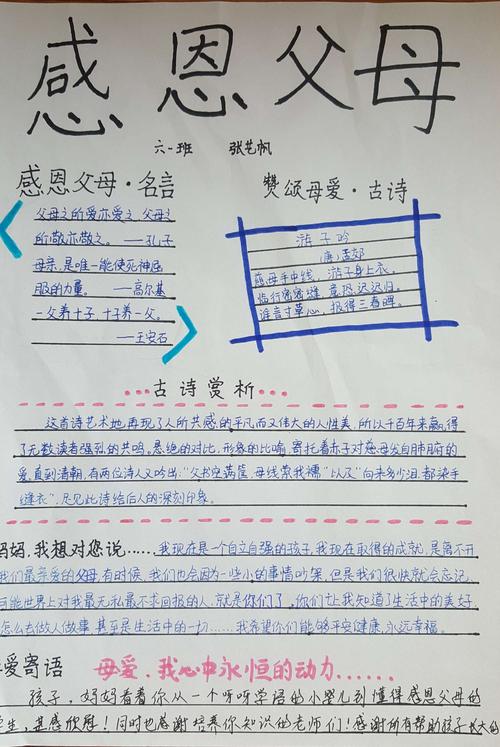 感恩父母
六一班 张艺帆
感恩父母·名言
父母之所爱亦爱之 父母之
所敬亦敬之。 ——孔子
母亲,是唯一能使死神屈
服的力量。 ——高尔基
一父养十子 十子养一父。
——王安石
赞颂母爱·古诗
游子吟
唐·孟郊
慈母手中线 游子身上衣。
临行密密缝 意恐迟迟归。
谁言寸草心,报得三春晖。
古诗赏析
这首诗艺术地再现了人所共感的平凡而又伟大的人性美,所以千百年来赢得
了无数读者强烈的共鸣。悬绝的对比,形象的比喻,寄托着赤子对慈母发自肺腑的
爱,直到清朝,有两位诗人又吟出:“父书空满筐,母线萦我襦”以及“向来多少泪,都染手
缝衣”,足见此诗给后人的深刻印象。
妈妈,我想对您说……我现在是一个自立自强的孩子,我现在取得的成就,是离不开
我们最亲爱的父母,有时候,我们也会因为一些小的事情吵架,但是我们很快就会忘记,
可能世界上对我最无私最不求回报的人,就是你们了,你们让我知道了生活中的美好,
怎么去做人做事,甚至是生活中的一切……我希望你们能够平安健康,永远幸福。
爱寄语 母爱,我心中永恒的动力……
孩子,妈妈看着你从一个呀呀学语的小婴儿到懂得感恩父母的
学生,甚感欣慰!同时也感谢培养你知识的老师们!感谢所有帮助孩子长大的